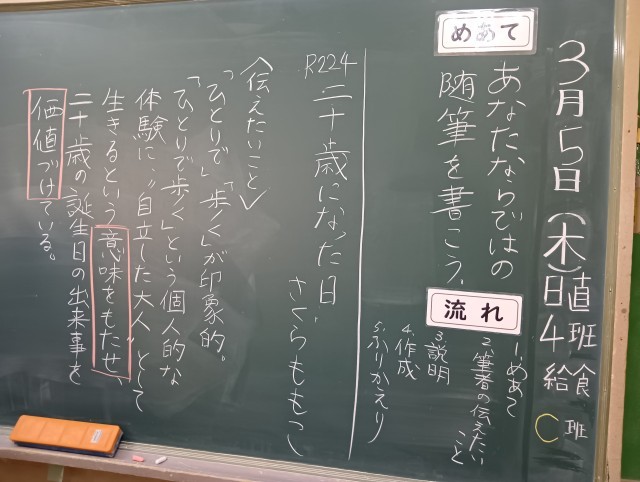 3月5日(木)日直4班
給食C班
めあて
あなたならではの
随筆を書こう。
流れ
1.めあて
2.筆者の伝えたい
こと
3.説明
4.作成
5.ふりかえり
R224
二十歳になった日 さくらももこ
〈伝えたいこと〉
「ひとりで」「歩く」が印象的。
「ひとりで歩く」という個人的な
体験に、"自立した大人"として
生きるという意味をもたせ、
二十歳の誕生日の出来事を
価値づけている。